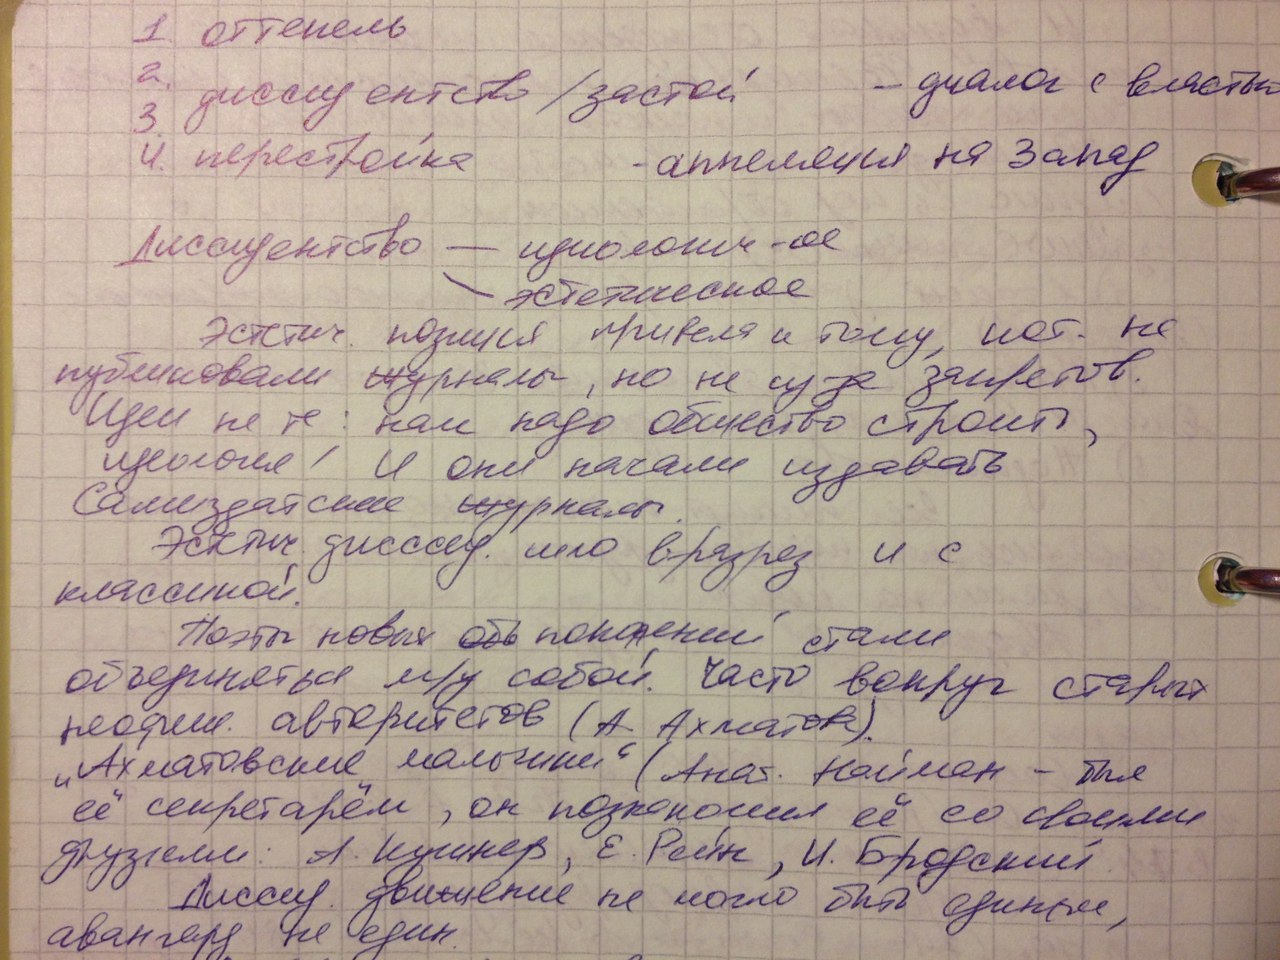 1. оттепель
2.
диссидентство / застой – диалог с властью
3.
4. перестройка - аппеляция на Запад
Диссидентство — идиологич-ое
эстетическое
Эстетич. позиция привела к тому, кот. не
публиковали журналы, но не из-за запретов.
Идеи не те: нам надо общество строить,
идеология! И они начали издавать
Самиздатские журналы.
Эстетич. диссид. шло вразрез и с
классикой.
Поэты новых поколений стали
объединяться м/у собой. Часто вокруг старых
неофиц. авторитетов (А. Ахматова).
„Ахматовские мальчики“ (Анат. Найман – был
её секретарём, он познакомил её со своими
друзьями: А. Кушнер, Е. Рейн, И. Бродский.
Диссид. движение не могло быть единым,
авангард не един.